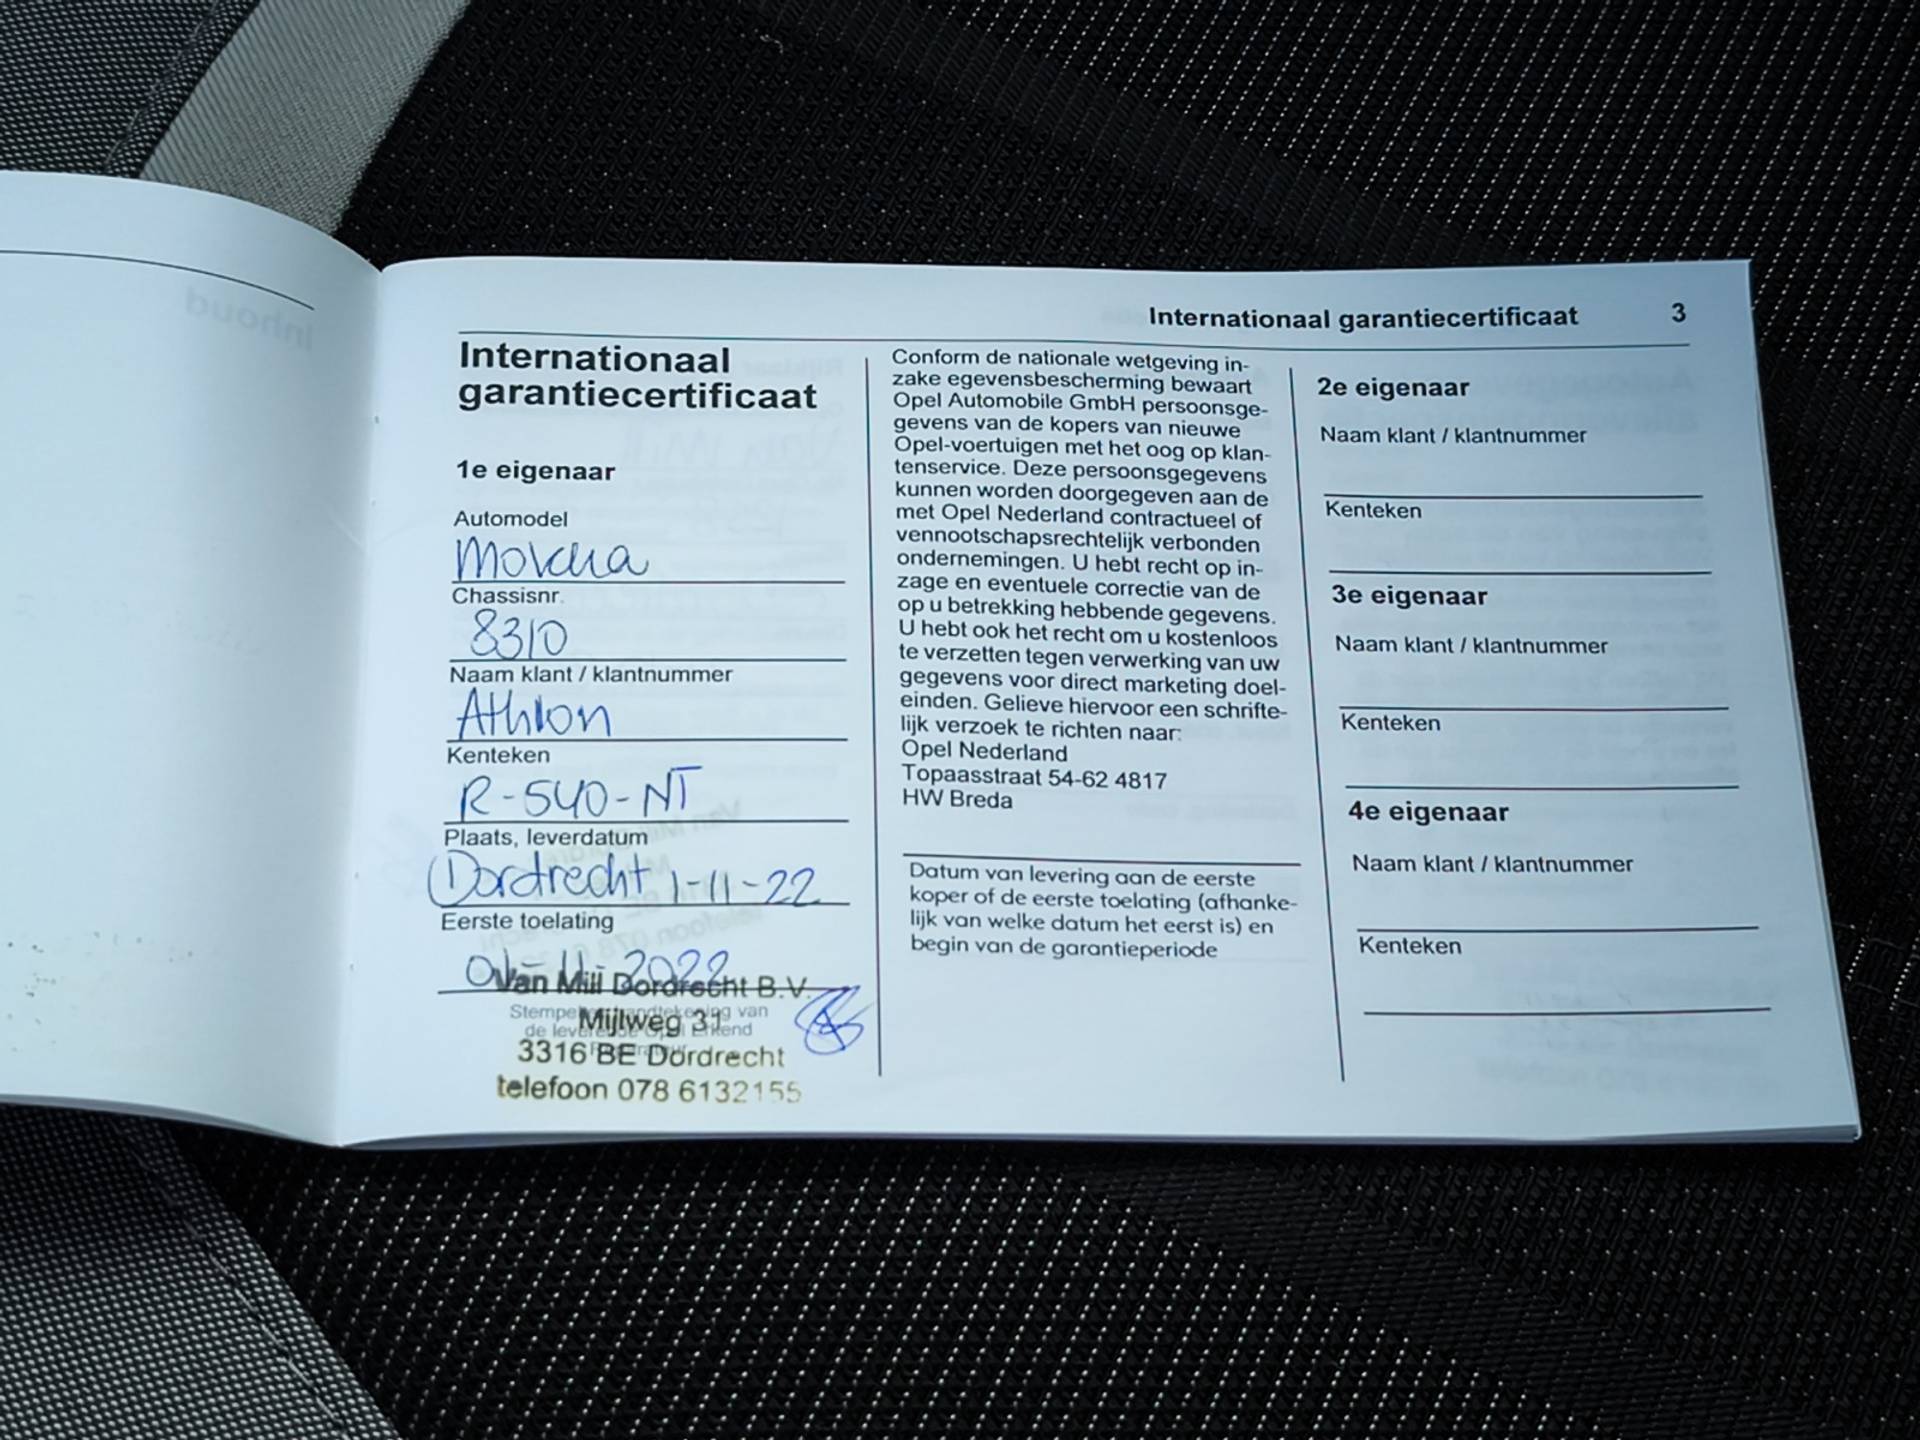 Inhoud
Internationaal garantiecertificaat 3
Internationaal
garantiecertificaat
1e eigenaar
Automodel
Mokka
Chassisnr.
8310
Naam klant / klantnummer
Athlon
Kenteken
R-540-NT
Plaats, leverdatum
Dordrecht 1-11-22
Eerste toelating
01-11-2022
Van Mill Dordrecht B.V.
Stempel en handtekening van
Mijlweg 31
de leverende Opel Erkend
Reparateur
3316 BE Dordrecht
telefoon 078 6132155
Conform de nationale wetgeving in-
zake egevensbescherming bewaart
Opel Automobile GmbH persoonsge-
gevens van de kopers van nieuwe
Opel-voertuigen met het oog op klan-
tenservice. Deze persoonsgegevens
kunnen worden doorgegeven aan de
met Opel Nederland contractueel of
vennootschapsrechtelijk verbonden
ondernemingen. U hebt recht op in-
zage en eventuele correctie van de
op u betrekking hebbende gegevens.
U hebt ook het recht om u kostenloos
te verzetten tegen verwerking van uw
gegevens voor direct marketing doel-
einden. Gelieve hiervoor een schrifte-
lijk verzoek te richten naar:
Opel Nederland
Topaasstraat 54-62 4817
HW Breda
Datum van levering aan de eerste
koper of de eerste toelating (afhanke-
lijk van welke datum het eerst is) en
begin van de garantieperiode
2e eigenaar
Naam klant / klantnummer
Kenteken
3e eigenaar
Naam klant / klantnummer
Kenteken
4e eigenaar
Naam klant / klantnummer
Kenteken